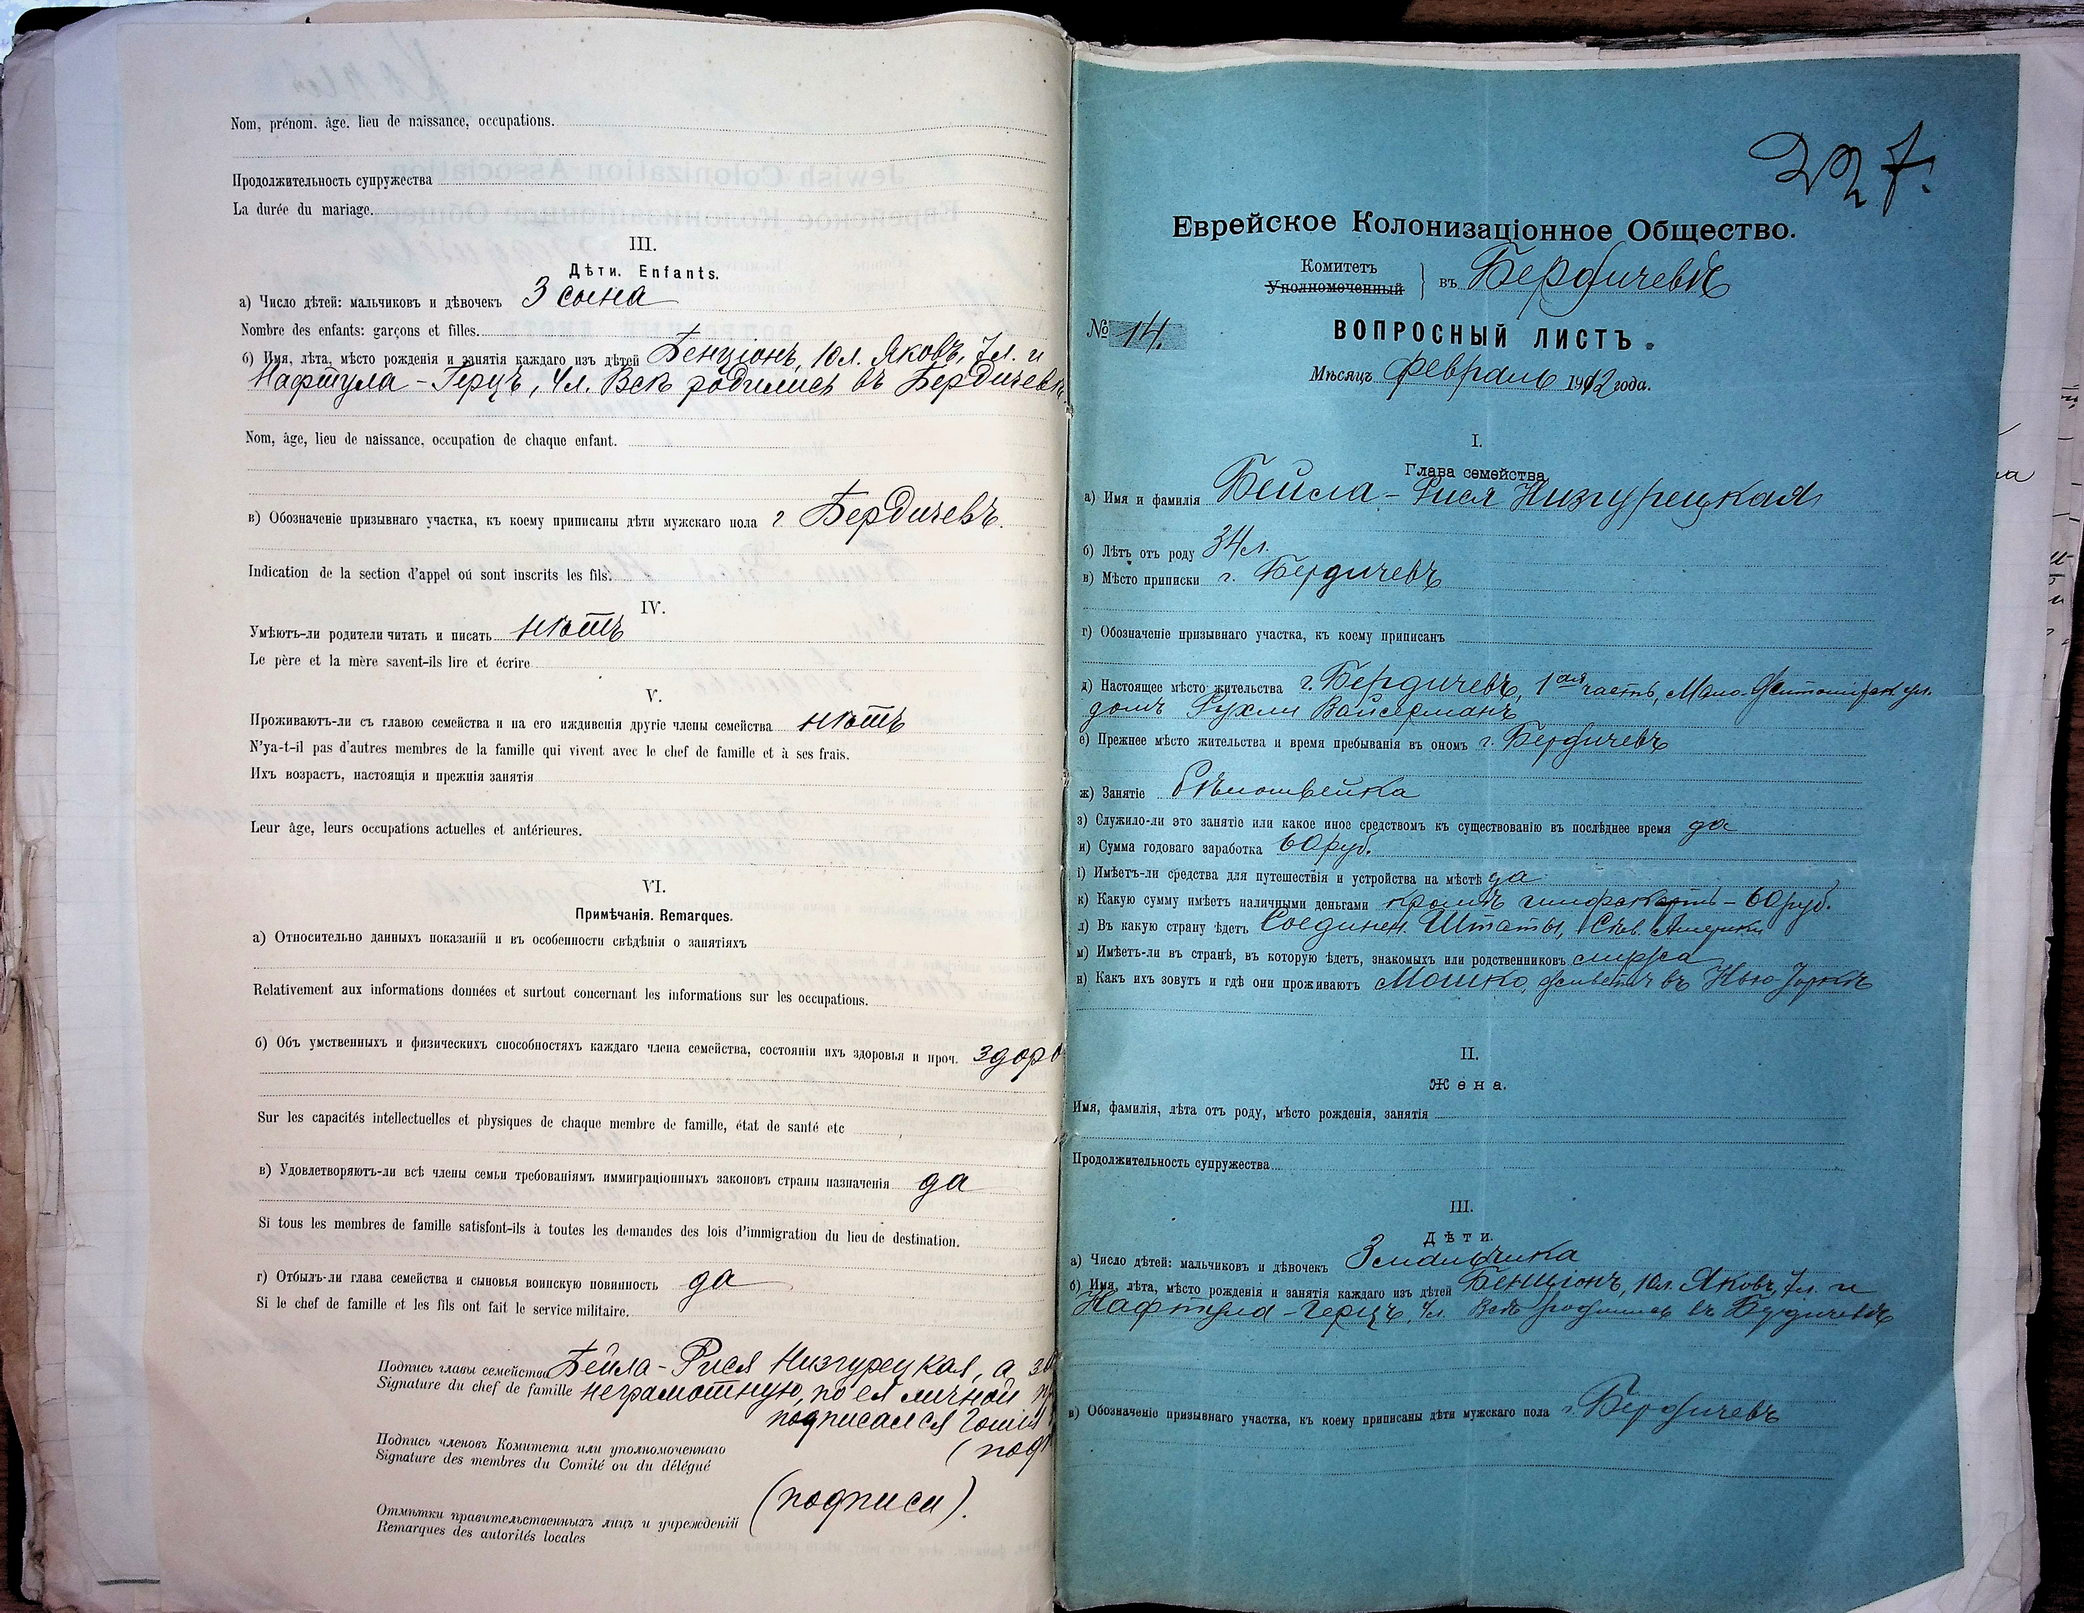 Nom, prénom. âge. lieu de naissance, occupations.
Продолжительность супружества
La durée du mariage.
III.
Дѣти. Enfants.
а) Число дѣтей: мальчиковъ и дѣвочекъ 3 сына
Nombre des enfants: garçons et filles.
б) Имя, лѣта, мѣсто рожденія и занятія каждаго изъ дѣтей Бенціонъ, 10 л. Яковъ, 7 л. и
Нафтула - Герцъ, 4 л. Всѣ родились въ Бердичевѣ
Nom, âge, lieu de naissance, occupation de chaque enfant.
в) Обозначеніе призывнаго участка, къ коему приписаны дѣти мужскаго пола г Бердичевъ.
Indication de la section d'appel oú sont inscrits les fils.
IV.
Умѣютъ-ли родители читать и писать нѣтъ
Le père et la mère savent-ils lire et écrire
V.
Проживаютъ-ли съ главою семейства и на его иждивенія другіе члены семейства нѣтъ
N'ya-t-il pas d'autres membres de la famille qui vivent avec le chef de famille et à ses frais.
Ихъ возрастъ, настоящія и прежнія занятія
Leur âge, leurs occupations actuelles et antérieures.
VI.
Примѣчанія. Remarques.
а) Относительно данныхъ показаній и въ особенности свѣдѣнія о занятіяхъ
Relativement aux informations données et surtout concernant les informations sur les occupations.
б) Объ умственныхъ и физическихъ способностяхъ каждаго члена семейства, состояніи ихъ здоровья и проч. здоро
Sur les capacités intellectuelles et physiques de chaque membre de famille, état de santé etc
в) Удовлетворяютъ-ли всѣ члены семьи требованіямъ иммиграціонныхъ законовъ страны назначенія да
Si tous les membres de famille satisfont-ils à toutes les demandes des lois d'immigration du lieu de destination.
г) Отбылъ-ли глава семейства и сыновья воинскую повинность да
Si le chef de famille et les fils ont fait le service militaire.
Подпись главы семейства Бейла-Рися Низгурецкая, а за
Signature du chef de famille неграмотную, по ея личной
подписался
Подпись членовъ Комитета или уполномоченнаго
Signature des membres du Comité ou du délégué (под
(подписи).
Отмѣтки правительственныхъ лицъ и учрежденій
Remarques des autorités locales
227.
Еврейское Колонизаціонное Общество.
Комитетъ
Уполномоченный } въ Бердичевѣ
№ 14.
ВОПРОСНЫЙ ЛИСТЪ.
Мѣсяцъ февраль 1912 года.
I.
Глава семейства
а) Имя и фамилія Бейла - Рися Низгурецкая
б) Лѣтъ отъ роду 34 л.
в) Мѣсто приписки г. Бердичевъ
г) Обозначеніе призывнаго участка, къ коему приписанъ
д) Настоящее мѣсто жительства г. Бердичевъ, 1ая часть, Мало-Житомирск ул.
домъ Рухли Вайсерманъ
е) Прежнее мѣсто жительства и время пребыванія въ ономъ г. Бердичевъ
ж) Занятіе бѣлошвейка
з) Служило-ли это занятіе или какое иное средствомъ къ существованію въ послѣднее время да
и) Сумма годоваго заработка 60 руб.
і) Имѣетъ-ли средства для путешествія и устройства на мѣстѣ да
к) Какую сумму имѣетъ наличными деньгами кромѣ шифскартъ - 60 руб.
л) Въ какую страну ѣдетъ Соединен. Штаты, Сѣв. Америки
м) Имѣетъ-ли въ странѣ, въ которую ѣдетъ, знакомыхъ или родственниковъ мужа
н) Какъ ихъ зовутъ и гдѣ они проживаютъ Мошко, живетъ въ Нью Іоркѣ
II.
Жена.
Имя, фамилія, лѣта отъ роду, мѣсто рожденія, занятія
Продолжительность супружества
III.
Дѣти.
а) Число дѣтей: мальчиковъ и дѣвочекъ 3 мальчика
б) Имя, лѣта, мѣсто рожденія и занятія каждаго изъ дѣтей Бенціонъ, 10 л. Яковъ, 7 л. и
Нафтула - Герцъ, 4 л. Всѣ родились въ Бердичевѣ
в) Обозначеніе призывнаго участка, къ коему приписаны дѣти мужскаго пола г. Бердичевъ